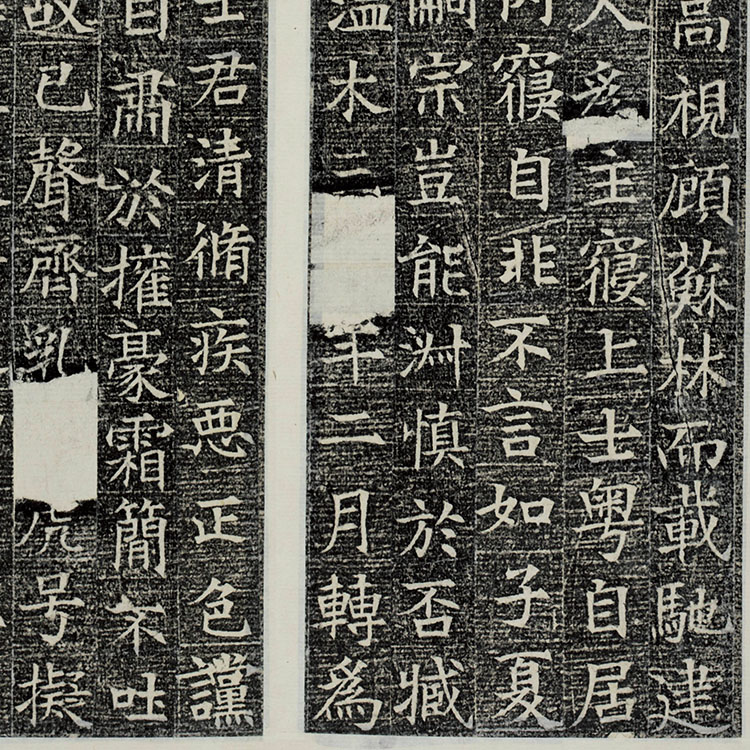 高視顧蘇林而載馳建
人主寢上士粤自居
內寢自非不言如子夏
嗣宗豈能淵慎於否臧
溫木二十二月轉為
君清脩疾惡正色讜
自肅於擁豪霜簡不吐
故已聲齊乳号擬